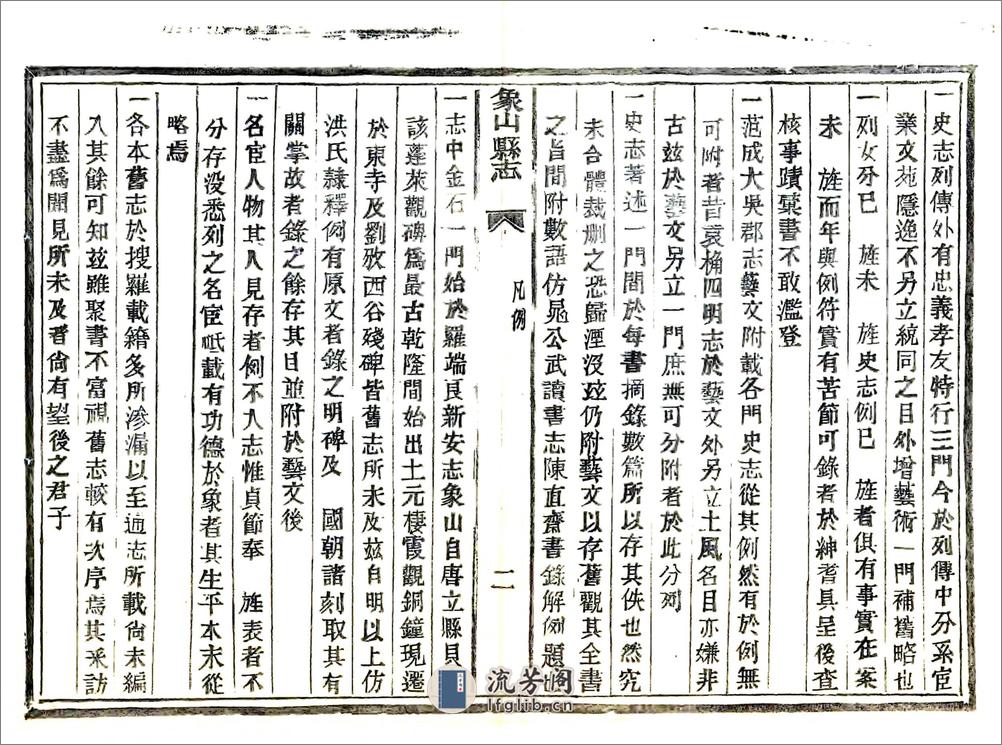 一史志列傳外有忠義孝友特行三門今於列傳中分系宦
業文苑隱逸不另立統同之目外增藝術一門補舊略也
一列女分已　旌未　旌史志例已　旌者俱有事實在案
未　旌而年與例符實有苦節可錄者於紳耆具呈後查
核事蹟彙書不敢濫登
一范成大吳郡志藝文附載各門史志從其例然有於例無
可附者昔袁桷四明志於藝文外另立土風名目亦嫌非
古玆於藝文另立一門庶無可分附者於此分列
一史志著述一門間於每書摘錄數篇所以存其佚也然究
未合體裁刪之恐歸湮沒玆仍附藝文以存舊觀其全書
之旨間附數語仿晁公武讀書志陳直齋書錄解例題
象山縣志
凡例
二
一志中金石一門始於羅端良新安志象山自唐立縣貝
該蓬萊觀碑爲最古乾隆間始出土元棲霞觀銅鐘現遷
於東寺及劉攽西谷殘碑皆舊志所未及玆自明以上仿
洪氏隷釋例有原文者錄之明碑及　國朝諸刻取其有
關掌故者錄之餘存其目並附於藝文後
一名宦人物其人見存者例不入志惟貞節奉　旌表者不
分存没悉列之名宦祗載有功德於象者其生平本末從
略焉
一各本舊志於搜羅載籍多所滲漏以至通志所載尙未編
入其餘可知玆雖聚書不富視舊志較有次序焉其采訪
不盡爲聞見所未及者尙有望後之君子
流芳閣
lfglib.cn